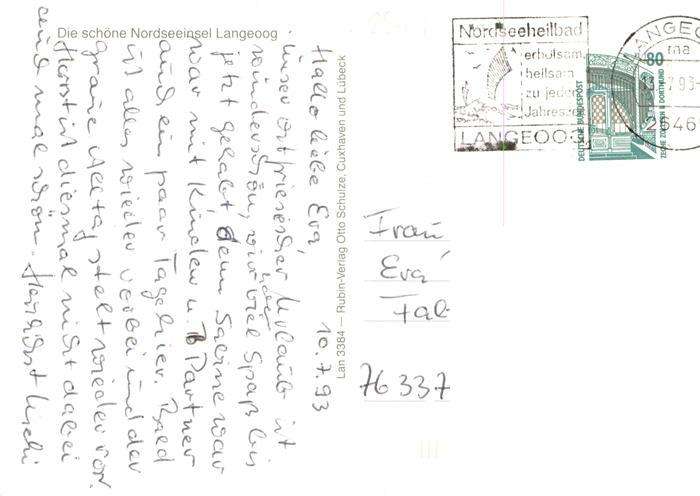 Die schöne Nordseeinsel Langeoog
10.7.93
Hallo liebe Eva,
unser ostfriesischer Urlaub ist
wunderschön, wir haben viel Spaß bis
jetzt gehabt, denn Sabine war
war mit Kindern u. Partner
auch ein paar Tage hier. Bald
ist alles wieder vorbei und der
graue Alltag steht wieder vor.
Horst ist diesmal nicht dabei
auch mal schön. Herzlichst
Lan 3384 — Rubin-Verlag Otto Schulze, Cuxhaven und Lübeck
Nordseeheilbad
erholsam,
heilsam
zu jeder
Jahreszeit
LANGEOOG
LANGEOO
ma
7.93-
2646
80
DEUTSCHE BUNDESPOST
ZECHE ZOLLERN II DORTMUND
Frau
Eva
Fab
76337